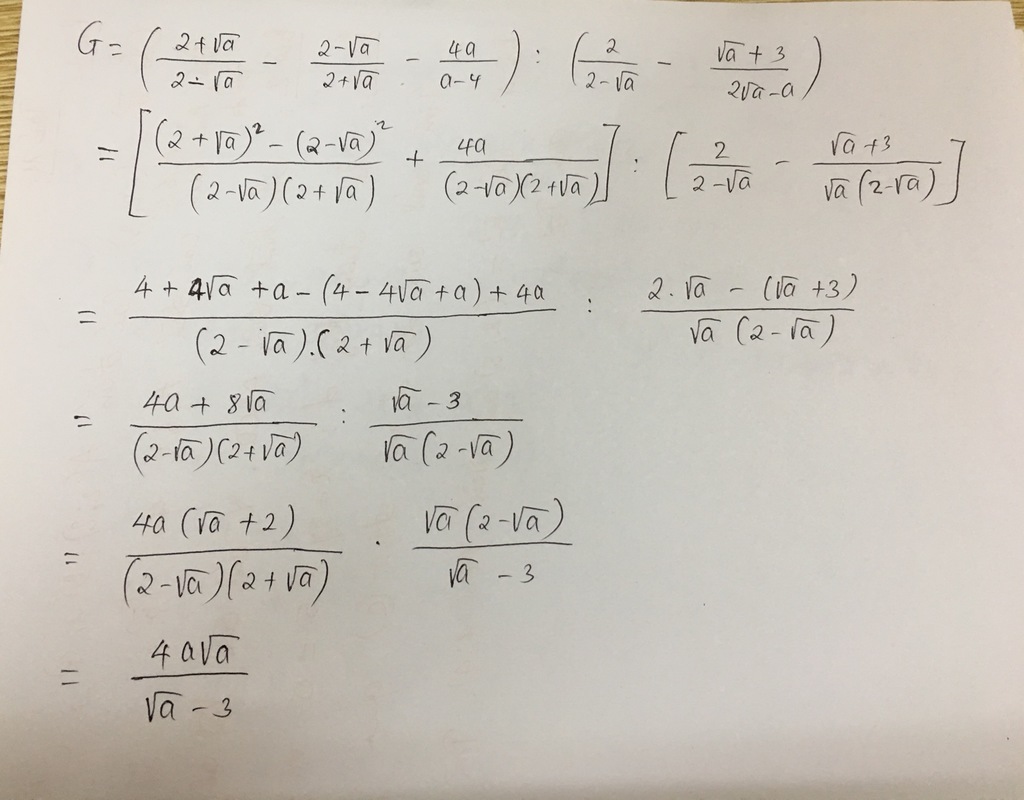 G = ( (2+√a)/(2-√a) - (2-√a)/(2+√a) - 4a/(a-4) ) : ( 2/(2-√a) - (√a+3)/(2√a-a) )
= [ ((2+√a)² - (2-√a)²)/((2-√a)(2+√a)) + 4a/((2-√a)(2+√a)) ] : [ 2/(2-√a) - (√a+3)/(√a(2-√a)) ]
= (4 + 4√a + a - (4 - 4√a + a) + 4a)/((2-√a).(2+√a)) : (2.√a - (√a+3))/(√a(2-√a))
= (4a + 8√a)/((2-√a)(2+√a)) : (√a-3)/(√a(2-√a))
= (4a(√a+2))/((2-√a)(2+√a)) . (√a(2-√a))/(√a-3)
= (4a√a)/(√a-3)